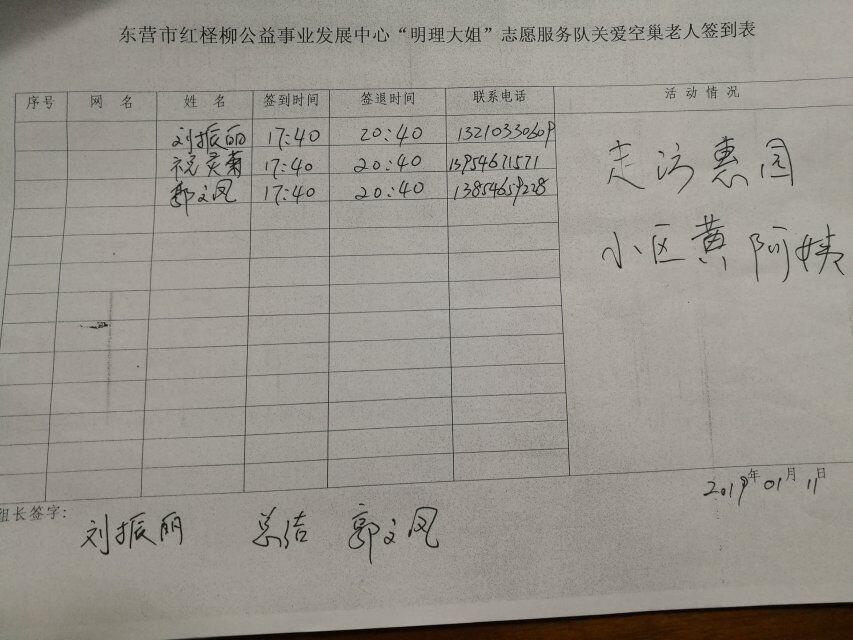 东营市红柽柳公益事业发展中心“明理大姐”志愿服务队关爱空巢老人签到表
序号 网 名 姓 名 签到时间 签退时间 联系电话 活 动 情 况
刘振丽 17:40 20:40 13210330609
祝灵菊 17:40 20:40 13954671571
郭文凤 17:40 20:40 13854659228
走访惠园
小区黄阿姨
2019年01月11日
组长签字:
刘振丽 总结 郭文凤